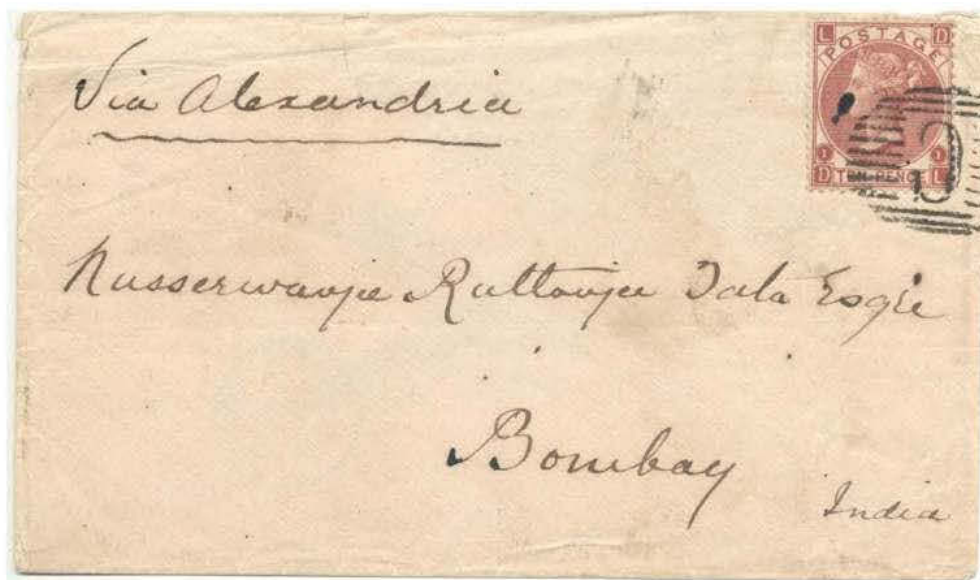 Via Alexandria
L D
POSTAGE
1 1
D TEN PENCE L
Nusserwanjee Ruttonjee Tata Esqre
Bombay
India